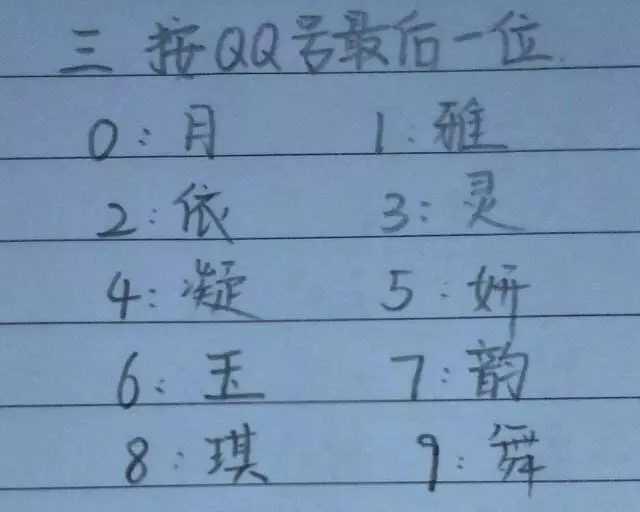 三 按QQ号最后一位.
0:月 1:雅
2:依 3:灵
4:凝 5:妍
6:玉 7:韵
8:琪 9:舞